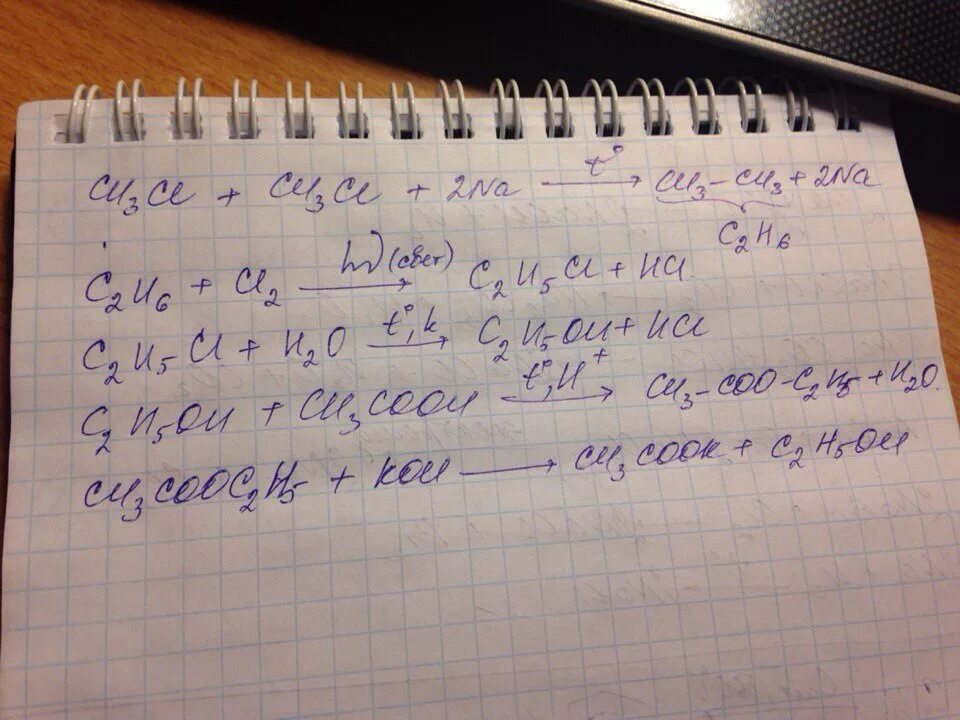 CH₃Cl + CH₃Cl + 2Na —t°→ CH₃–CH₃ + 2Na
C₂H₆
C₂H₆ + Cl₂ —hν (свет)→ C₂H₅Cl + HCl
C₂H₅Cl + H₂O —t°, k→ C₂H₅OH + HCl
C₂H₅OH + CH₃COOH —t°, H⁺→ CH₃–COO–C₂H₅ + H₂O.
CH₃COOC₂H₅ + KOH → CH₃COOK + C₂H₅OH